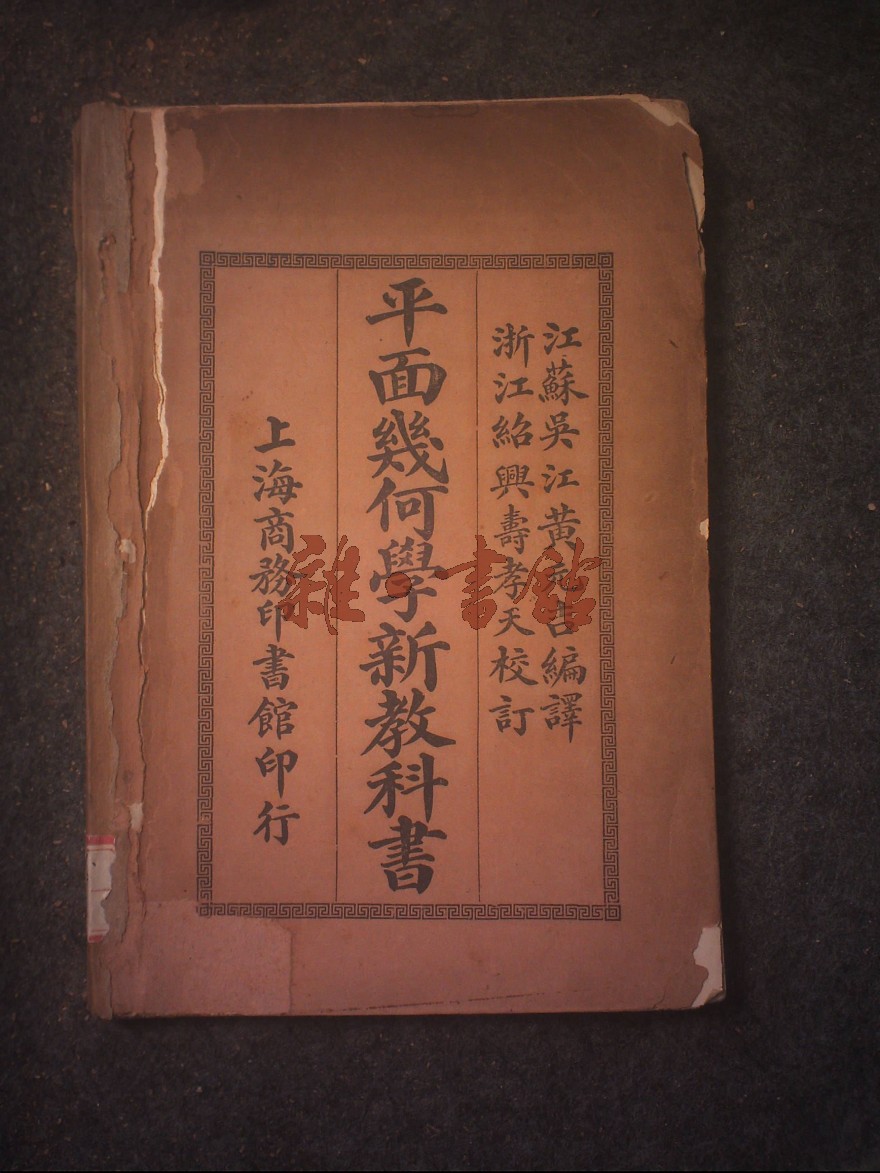 江蘇吳江黃元吉編譯
浙江紹興壽孝天校訂
平面幾何學新教科書
上海商務印書館印行
雜·書館